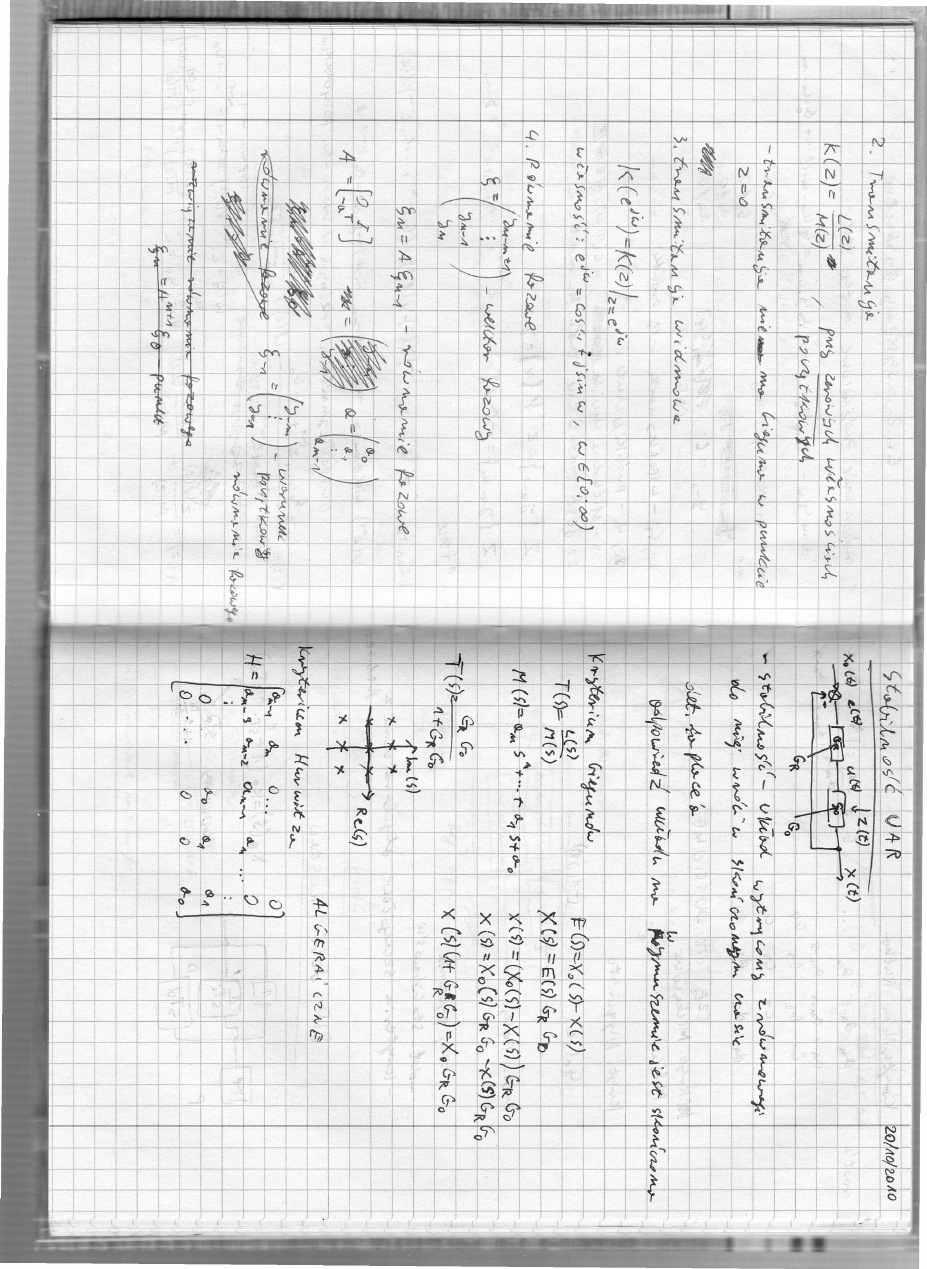 2. Transmitancja
K(z) = L(z)/M(z) , przy zerowych własnościach
początkowych
- transmitancja nie ma bieguna w punkcie
z=0
3. transmitancja widmowa
K(e^jω) = K(z)|z=e^jω
własność: e^jω = cosω + jsinω, ω∈[0;∞)
4. Równanie fazowe
ξ = (yn-m+1 ⋮ yn-1 yn) - wektor fazowy
ξn = A ξn-1 - równanie fazowe
A = [0 I -aT] a = (a0 a1 ⋮ am-1)
równanie fazowe ξn = (y-m ⋮ y-1) - warunek
początkowy
równania fazowego
rozwiązanie równania fazowego
ξn = A^n+1 ξ0 - punkt
Stabilność UAR
20/10/2010
x0(t) e(t) u(t) ↓z(t) x(t)
GR G0
- Stabilność - układ wytrącony z równowagi
do niej wróci w skończonym czasie
def. Laplace'a
odpowiedź układu na wymuszenie jest skończona
Kryterium biegunów
T(s) = L(s)/M(s)
M(s) = an s^n + ... + a1 s + a0
T(s) = GR G0/1+GR G0
E(s) = X0(s) - X(s)
X(s) = E(s) GR G0
X(s) = (X0(s) - X(s)) GR G0
X(s) = X0(s) GR G0 - X(s) GR G0
X(s)(1 + GR G0) = X0 GR G0
Im(s)
Re(s)
Kryterium Hurwitza
ALGERAICZNE
H = [an-1 an 0 ... 0
an-3 an-2 an-1 an ... 0
⋮ ⋮
0 a0 a1 a1
0 ... 0 0 a0]